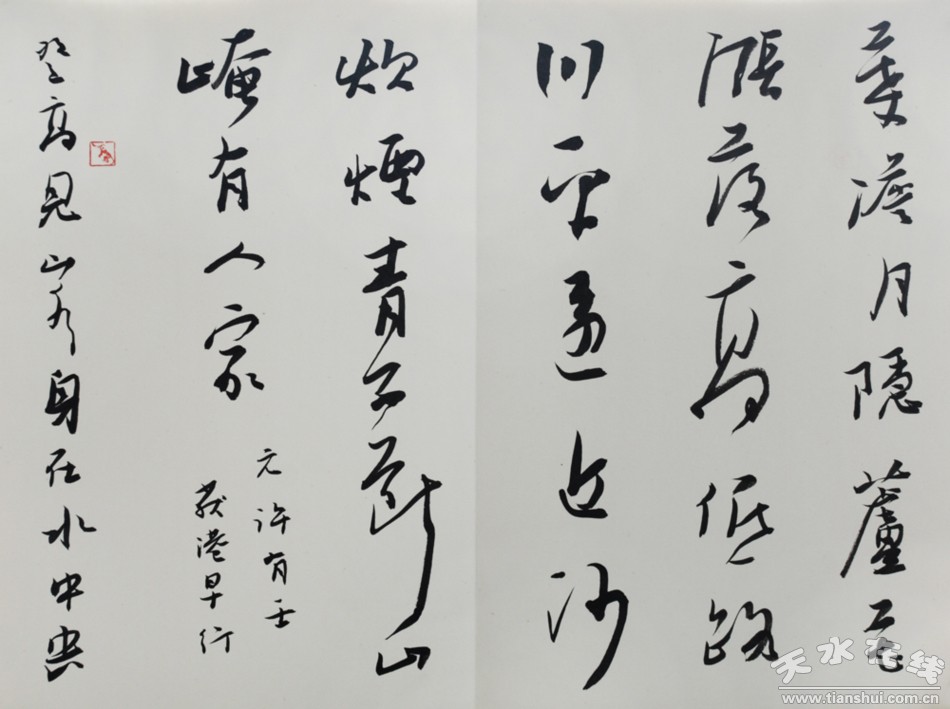 葉澹月隱蘆花
漲落高低路
川平遠近沙
炊煙青不斷山
崦有人家
元許有壬
荻港早行
登高見山水身在水中央
天水在线
www.tianshui.com.cn